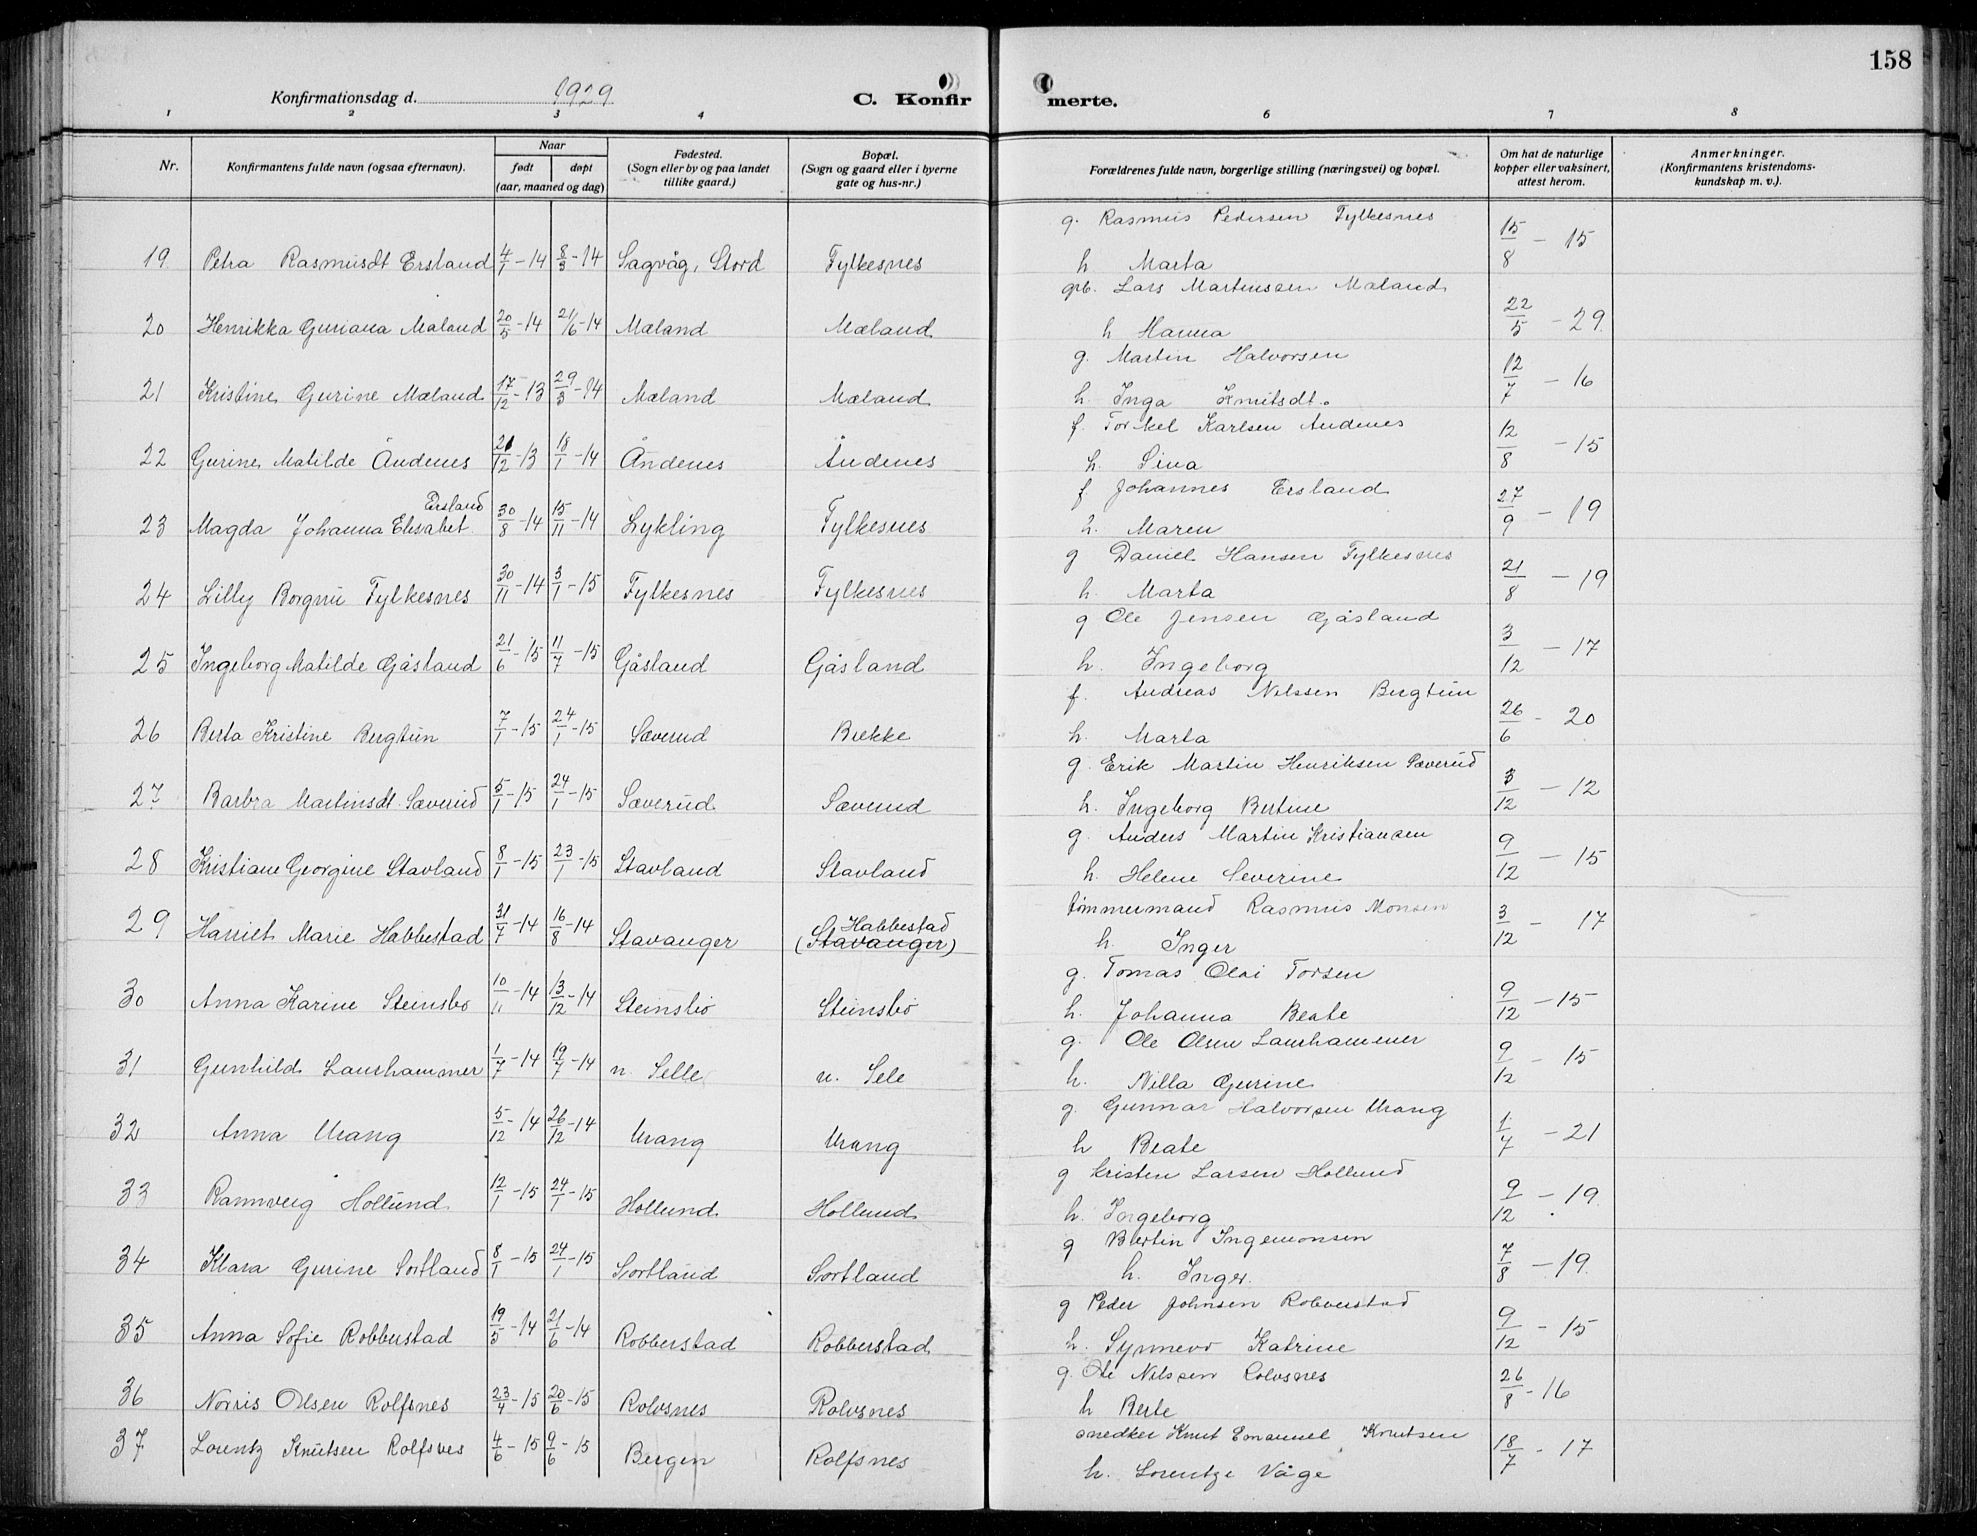 158
Konfirmationsdag d. 1929
C. Konfirmerte.
1 2 3 4 6 7 8
Nr.
Konfirmantens fulde navn (ogsaa efternavn).
Naar
født døpt
(aar, maaned og dag)
Fødested.
(Sogn eller by og paa landet
tillike gaard.)
Bopæl.
(Sogn og gaard eller i byerne
gate og hus-nr.)
Forældrenes fulde navn, borgerlige stilling (næringsvei) og bopæl.
Om hat de naturlige
kopper eller vaksinert,
attest herom.
Anmerkninger.
(Konfirmantens kristendoms-
kundskap m. v.).
g. Rasmus Pedersen Fylkesnes
19 Petra Rasmusdt Ersland 4/1 - 14 8/3 - 14 Sagvåg, Stord Fylkesnes h Marta 15/8 - 15
grb. Lars Martinssen Mæland
20 Henrikka Guriana Mæland 20/5 - 14 21/6 - 14 Mæland Mæland h Hanna 22/5 - 29
g. Martin Halvorsen
21 Kristine Gurine Mæland 17/12 - 13 29/3 - 14 Mæland Mæland h. Inga Knutsdt. 12/7 - 16
f. Torkel Karlsen Andenes
22 Gurine Matilde Åndenes 21/12 - 13 18/1 - 14 Åndenes Åndenes h. Sina 12/8 - 15
f Johannes Ersland
23 Magda Johanna Elisabet Ersland 30/8 - 14 15/11 - 14 Lykling Fylkesnes h. Maren 27/9 - 19
g Daniel Hansen Fylkesnes
24 Lilly Borgni Fylkesnes 30/11 - 14 3/1 - 15 Fylkesnes Fylkesnes h. Marta 21/8 - 19
g Ole Jensen Gåsland
25 Ingeborg Matilde Gåsland 21/6 - 15 11/7 - 15 Gåsland Gåsland h. Ingeborg 3/12 - 17
f. Andreas Nilssen Bergtun
26 Berta Kristine Bergtun 7/1 - 15 24/1 - 15 Sæverud Bekke h. Marta 26/6 - 20
g. Erik Martin Henriksen Sæverud
27 Barbra Martinsdt. Sæverud 5/1 - 15 24/1 - 15 Sæverud Sæverud h. Ingeborg Bertine 3/12 - 12
g. Anders Martin Kristiansen
28 Kristiane Georgine Stavland 8/1 - 15 23/1 - 15 Stavland Stavland h. Helene Severine 9/12 - 15
tømmermand Rasmus Monsen
29 Harriet Marie Habbestad 31/7 - 14 16/8 - 14 Stavanger Habbestad (Stavanger) h. Inger 3/12 - 17
g. Tomas Olai Torsen
30 Anna Karine Steinsbø 10/11 - 14 13/12 - 14 Steinsbø Steinsbø h. Johanna Beate 9/12 - 15
g. Ole Olsen Laurhammer
31 Gunhild Laurhammer 1/7 - 14 19/7 - 14 n. Selle n. Sele h. Nilla Gurine 9/12 - 15
g. Gunnar Halvorsen Urang
32 Anna Urang 5/12 - 14 26/12 - 14 Urang Urang h Beate 1/7 - 21
g Kristen Larsen Hollund
33 Rannveig Hollund 12/1 - 15 24/1 - 15 Hollund Hollund h. Ingeborg 9/12 - 19
g Bertin Ingemonsen
34 Klara Gurine Sortland 8/1 - 15 24/1 - 15 Sortland Sortland h. Inger. 7/8 - 19
g Peder Johnsen Robberstad
35 Anna Sofie Robberstad 19/5 - 14 21/6 - 14 Robberstad Robberstad h. Synnevo Katrine 9/12 - 15
g. Ole Nilssen Rolvsnes
36 Norris Olsen Rolfsnes 23/4 - 15 20/6 - 15 Rolvsnes Rolvsnes h Berte 26/8 - 16
snedker Knut Emanuel Knutsen
37 Lorentz Knutsen Rolfsnes 4/6 - 15 9/6 - 15 Bergen Rolfsnes h. Lorentze Våge 18/7 - 17